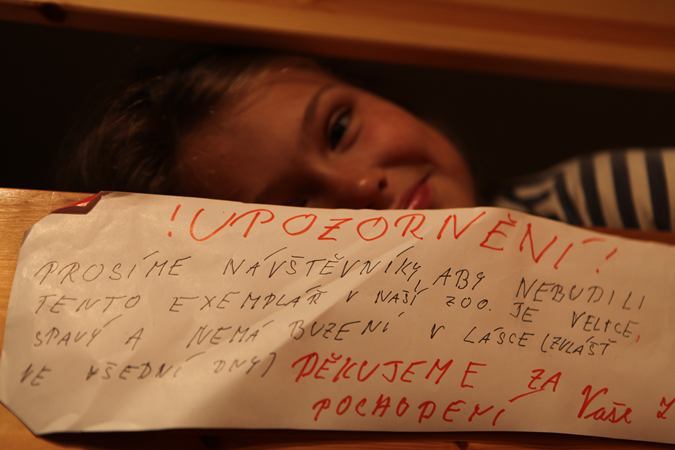 !UPOZORNĚNÍ!
PROSÍME NÁVŠTĚVNÍKY, ABY NEBUDILI
TENTO EXEMPLÁŘ V NAŠÍ ZOO. JE VELICE
SPAVÝ A NEMÁ BUZENÍ V LÁSCE (ZVLÁŠŤ
VE VŠEDNÍ DNY) DĚKUJEME ZA
POCHOPENÍ Vaše